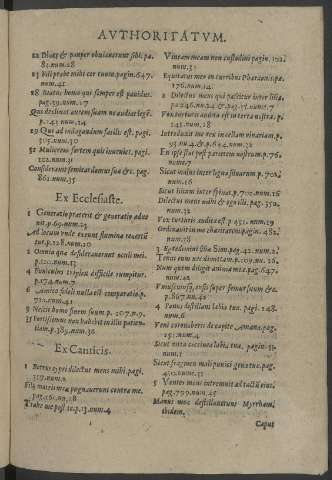 AVTHORITATVM.
22 Diues & pauper obuiauerunt sibi. pa.
81.num.28
23 Fili præbe mihi cor tuum. pagin.647.
num.41
28 Beatus homo qui semper est pauidus.
pag.39.num.27
Qui declinat aurem suam ne audiat legē.
p.141.num.24
29 Qui ad indagandum facilis est. pagi.
num.30
31 Mulierem fortem quis inueniet. pagi.
102.num.31
Considerauit semitas domus suæ &c. pag.
861.num.35
Ex Ecclesiaste.
1 Generatio præterit & generatio adue
nit.p.69.num.25
Ad locum vnde exeunt flumina reuertū
tur.p.128.num.20
2 Omnia quæ desiderauerunt oculi mei.
p.120.num.13
4 Funiculus triplex difficile rumpitur.
p.174.num.7
6 Amico fideli nulla est comparatio.p.
num.41
9 Nescit homo finem suum p. 207.n.9.
num.36
Ex Canticis.
1 Botrus cypri dilectus meus mihi. pagi.
317.num.2
Filij matris meæ pugnauerunt contra me.
pag.161.nu.28
Trahe me post te.p.13.num.4
Vineam meam non custodiui pagin.102.
num.31
Equitatui meo in curribus Pharaonis.pa.
176.num.14.
2 Dilectus meus qui pascitur inter lilia.
Vox turturis audita est in terra nostra. p.
num.28
Introduxit me rex in cellam vinariam.p.
num.32
En ipse stat post parietem nostrum.p.76.
num.7
Sicut malus inter ligna siluarum p.
num.26
Sicut lilium inter spinas.p.702.num.16
Dilectus meus mihi & ego illi. pag.550.
num.32
Vox turturis audita est.p 451.num.29
Ordinauit in me charitatem.pagin.482.
num.18
3 Egredimini filiæ Sion.pag.42.num.2.
Tenui eum nec dimittam.p.109.nu.26.
Num quem diligit anima mea.pag.647.
num.42
4 Fons destillans labia tua. pagi. 148.
num.6
Veni coronaberis de capite Amana.pag.
25.num.4
Sicut vitta coccinea labia tua. pagin.51.
num.5
Sicut fragmen mali punici genæ tuæ.pag.
451.num.31
5 Venter meus intremuit ad tactū eius.
pag.799.num.45
Manus meæ destillauerunt Myrrham.
ibidem.
Caput